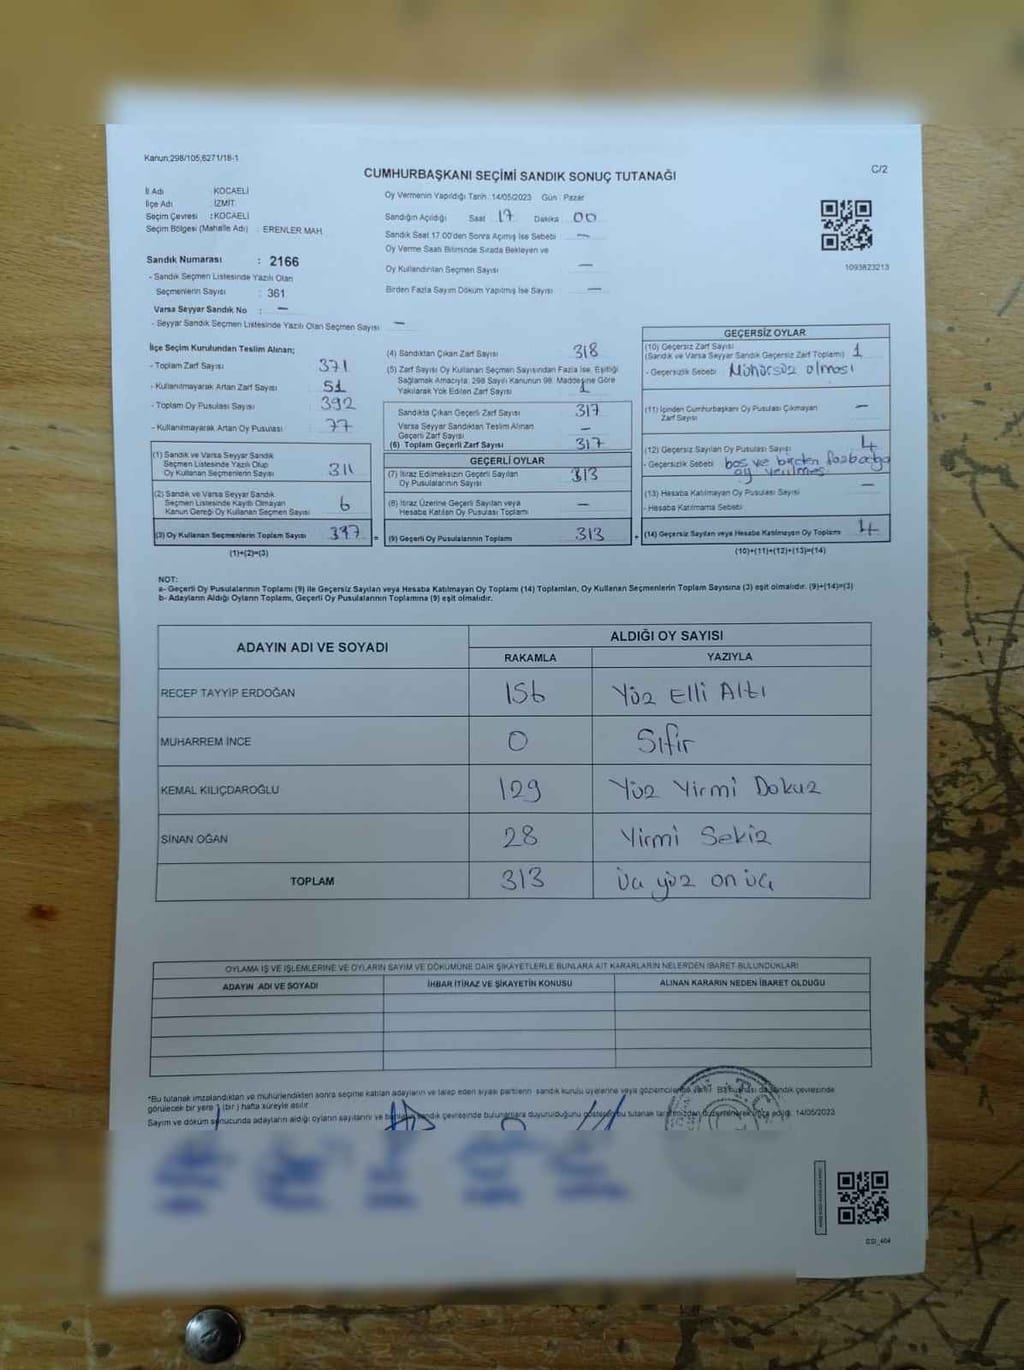 Kanun;298/105,6271/18-1
CUMHURBAŞKANI SEÇİMİ SANDIK SONUÇ TUTANAĞI
C/2
İl Adı KOCAELİ
İlçe Adı İZMİT
Seçim Çevresi : KOCAELİ
Seçim Bölgesi (Mahalle Adı) : ERENLER MAH.
Sandık Numarası : 2166
- Sandık Seçmen Listesinde Yazılı Olan
Seçmenlerin Sayısı : 361
Varsa Seyyar Sandık No : —
- Seyyar Sandık Seçmen Listesinde Yazılı Olan Seçmen Sayısı —
Oy Vermenin Yapıldığı Tarih 14/05/2023 Gün : Pazar
Sandığın Açıldığı Saat 17 Dakika 00
Sandık Saat 17.00'den Sonra Açımış İse Sebebi —
Oy Verme Saati Bitiminde Sırada Bekleyen ve
Oy Kullandırılan Seçmen Sayısı —
Birden Fazla Sayım Döküm Yapılmış İse Sayısı —
1093823213
İlçe Seçim Kurulundan Teslim Alınan;
- Toplam Zarf Sayısı 371
- Kullanılmayarak Artan Zarf Sayısı 51
- Toplam Oy Pusulası Sayısı 392
- Kullanılmayarak Artan Oy Pusulası 77
(1) Sandık ve Varsa Seyyar Sandık
Seçmen Listesinde Yazılı Olup
Oy Kullanan Seçmenlerin Sayısı 311
(2) Sandık ve Varsa Seyyar Sandık
Seçmen Listesinde Kayıtlı Olmayan
Kanun Gereği Oy Kullanan Seçmen Sayısı 6
(3) Oy Kullanan Seçmenlerin Toplam Sayısı 317 =
(1)+(2)=(3)
(4) Sandıktan Çıkan Zarf Sayısı 318
(5) Zarf Sayısı Oy Kullanan Seçmen Sayısından Fazla İse, Eşitliği
Sağlamak Amacıyla, 298 Sayılı Kanunun 98. Maddesine Göre
Yakılarak Yok Edilen Zarf Sayısı 1
Sandıkta Çıkan Geçerli Zarf Sayısı 317
Varsa Seyyar Sandıktan Teslim Alınan
Geçerli Zarf Sayısı —
(6) Toplam Geçerli Zarf Sayısı 317
GEÇERLİ OYLAR
(7) İtiraz Edilmeksizin Geçerli Sayılan
Oy Pusulalarının Sayısı 313
(8) İtiraz Üzerine Geçerli Sayılan veya
Hesaba Katılan Oy Pusulası Toplamı —
(9) Geçerli Oy Pusulalarının Toplamı 313 +
GEÇERSİZ OYLAR
(10) Geçersiz Zarf Sayısı
(Sandık ve Varsa Seyyar Sandık Geçersiz Zarf Toplamı) 1
- Geçersizlik Sebebi Mühürsüz olması
(11) İçinden Cumhurbaşkanı Oy Pusulası Çıkmayan
Zarf Sayısı —
(12) Geçersiz Sayılan Oy Pusulası Sayısı 4
- Geçersizlik Sebebi boş ve birden fazla
oy verilmesi
(13) Hesaba Katılmayan Oy Pusulası Sayısı —
- Hesaba Katılmama Sebebi
(14) Geçersiz Sayılan veya Hesaba Katılmayan Oy Toplamı 4
(10)+(11)+(12)+(13)=(14)
NOT:
a- Geçerli Oy Pusulalarının Toplamı (9) ile Geçersiz Sayılan veya Hesaba Katılmayan Oy Toplamı (14) Toplamları, Oy Kullanan Seçmenlerin Toplam Sayısına (3) eşit olmalıdır. (9)+(14)=(3)
b- Adayların Aldığı Oyların Toplamı, Geçerli Oy Pusulalarının Toplamına (9) eşit olmalıdır.
ADAYIN ADI VE SOYADI ALDIĞI OY SAYISI
RAKAMLA YAZIYLA
RECEP TAYYİP ERDOĞAN 156 Yüz Elli Altı
MUHARREM İNCE 0 Sıfır
KEMAL KILIÇDAROĞLU 129 Yüz Yirmi Dokuz
SİNAN OĞAN 28 Yirmi Sekiz
TOPLAM 313 Üç yüz on üç
OYLAMA İŞ VE İŞLEMLERİNE VE OYLARIN SAYIM VE DÖKÜMÜNE DAİR ŞİKAYETLERLE BUNLARA AİT KARARLARIN NELERDEN İBARET BULUNDUKLARI
ADAYIN ADI VE SOYADI İHBAR İTİRAZ VE ŞİKAYETİN KONUSU ALINAN KARARIN NEDEN İBARET OLDUĞU
*Bu tutanak imzalandıktan ve mühürlendikten sonra seçime katılan adayların ve talep eden siyasi partilerin sandık kurulu üyelerine veya gözlemcilerine verilir. Bir nüshası da sandık çevresinde
görülecek bir yere 1 (bir) hafta süreyle asılır
Sayım ve döküm sonucunda adayların aldığı oyların sayılarını ve sandık çevresinde bulunanlara duyurulduğunu gösteren bu tutanak tarafımızdan 14/05/2023